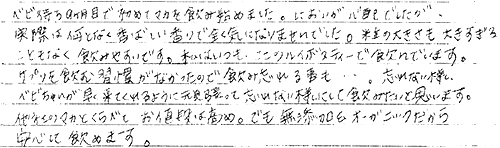 ベビ待ち9ヶ月目で初めてマカを飲み始めました。においが心配でしたが、
実際は何となく香ばしい香りで全く気になりませんでした。粒の大きさも大きすぎる
こともなく飲みやすいです。私はいつもノニ ルイボスティーで飲んでいます。
サプリを飲む習慣がなかったので飲み忘れる事も…。忘れない様、
ベビちゃんが早く来てくれるように元気を貰って忘れない様にして飲みたいと思います。
他社のマカとくらべて お値段は高め。でも無添加&オーガニックだから
安心して飲めます。